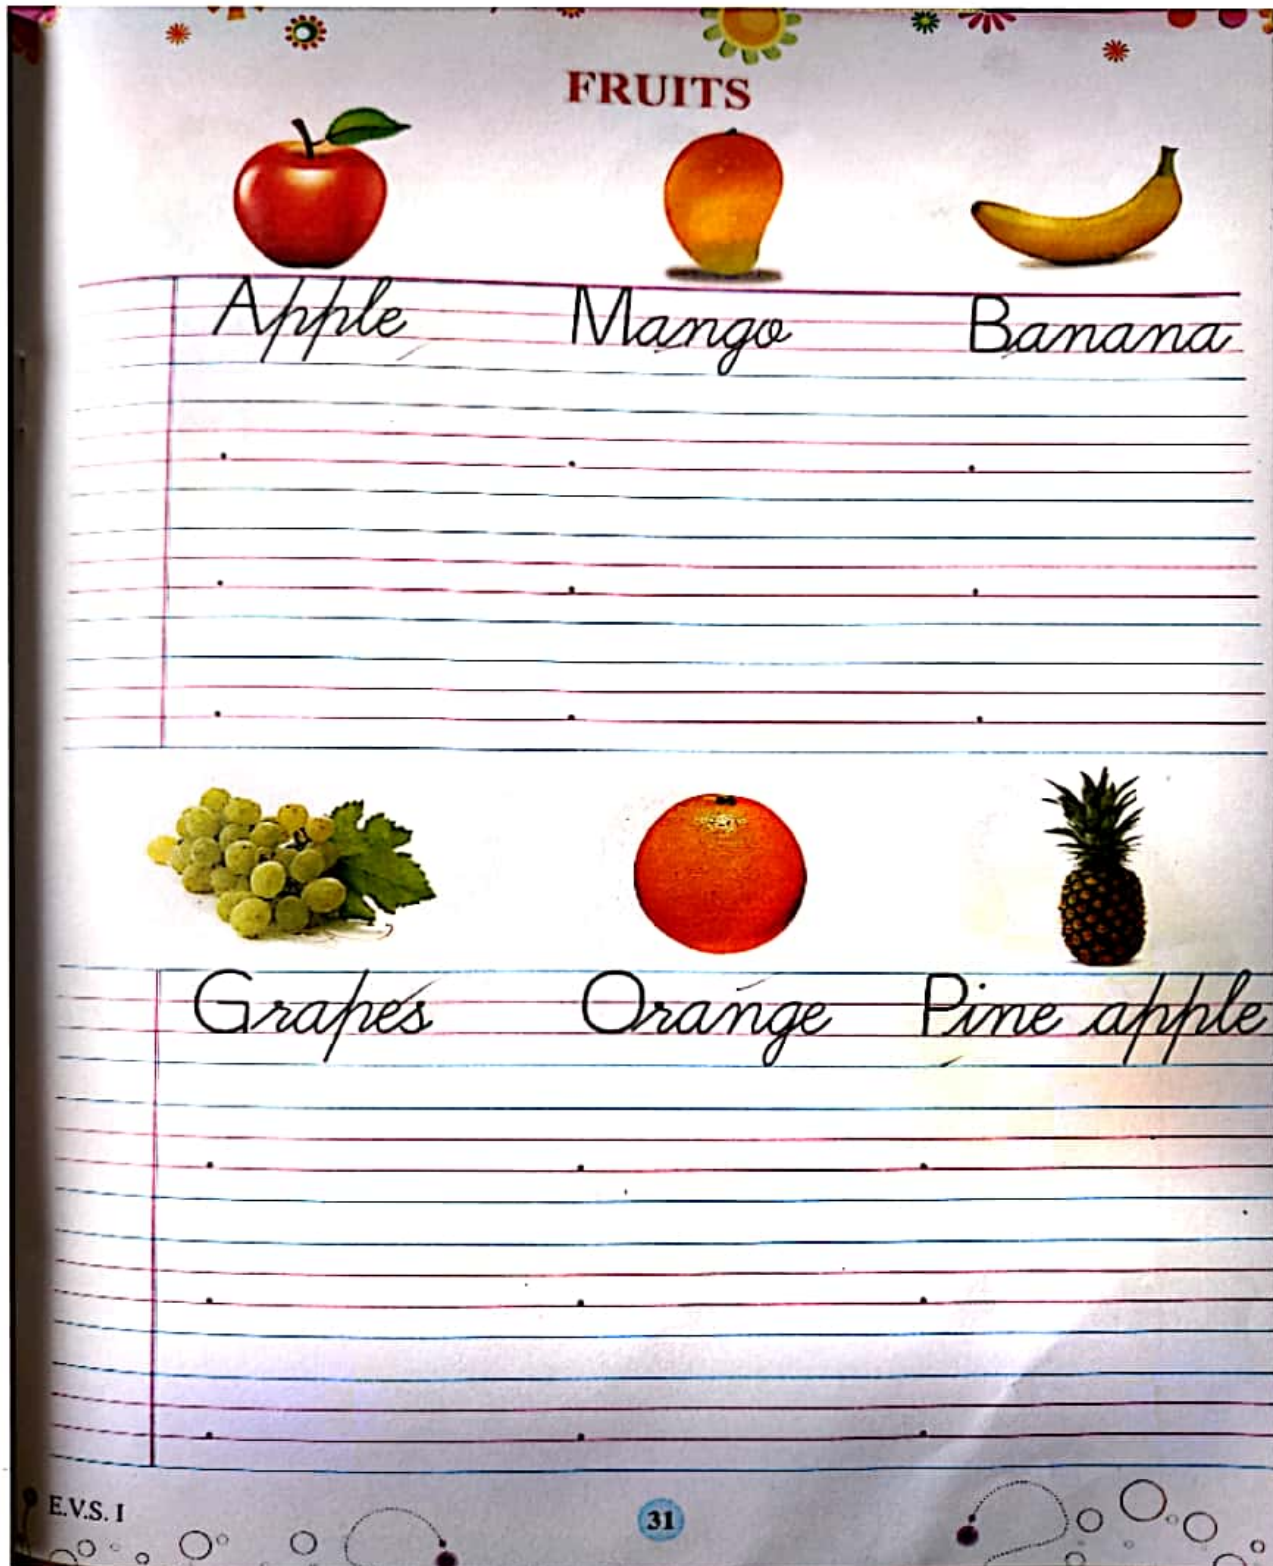 FRUITS
Apple Mango Banana
Grapes Orange Pine apple
E.V.S. I 31